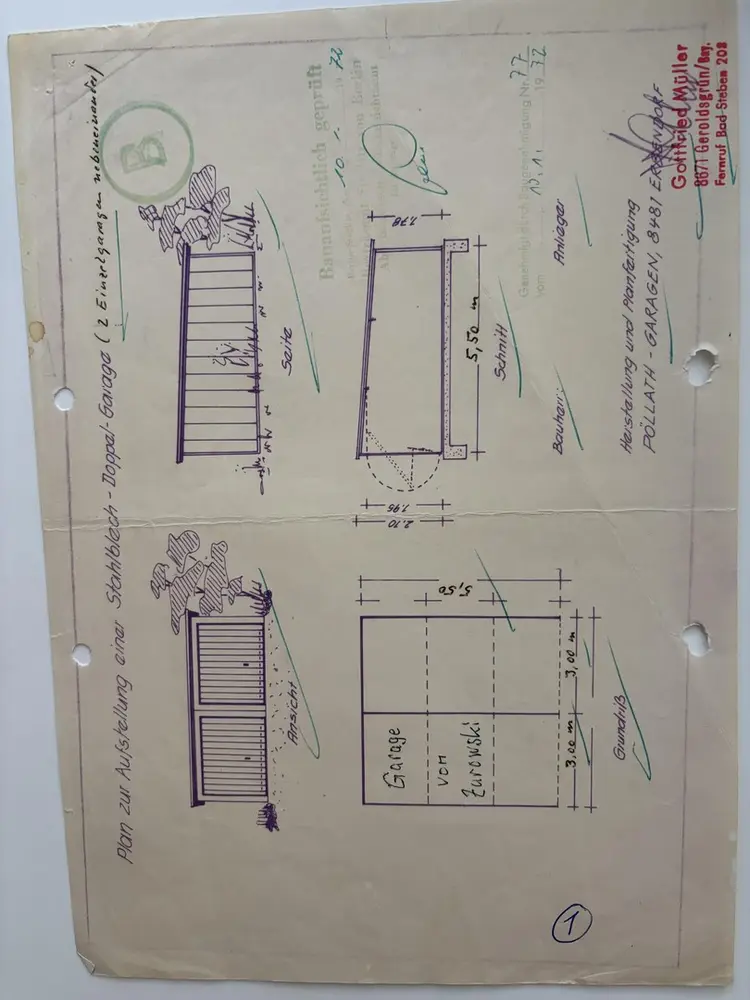 Plan zur Aufstellung einer Stahlblech - Doppel - Garage ( 2 Einzelgaragen nebeneinander )
B
Ansicht
Seite
Bauaufsichtlich geprüft
10. 1. 1972
2.10
1.95
1.78
5,50 m
Schnitt
5,50
Garage
von
Żurowski
3.00 m
3,00 m
Grundriß
77
10.1. 1972
Bauherr:
Anlieger
Herstellung und Planfertigung
PÖLLATH - GARAGEN, 8481 ERBENDORF
Gottfried Müller
8671 Geroldsgrün/Bay.
Fernruf Bad-Steben 208
1